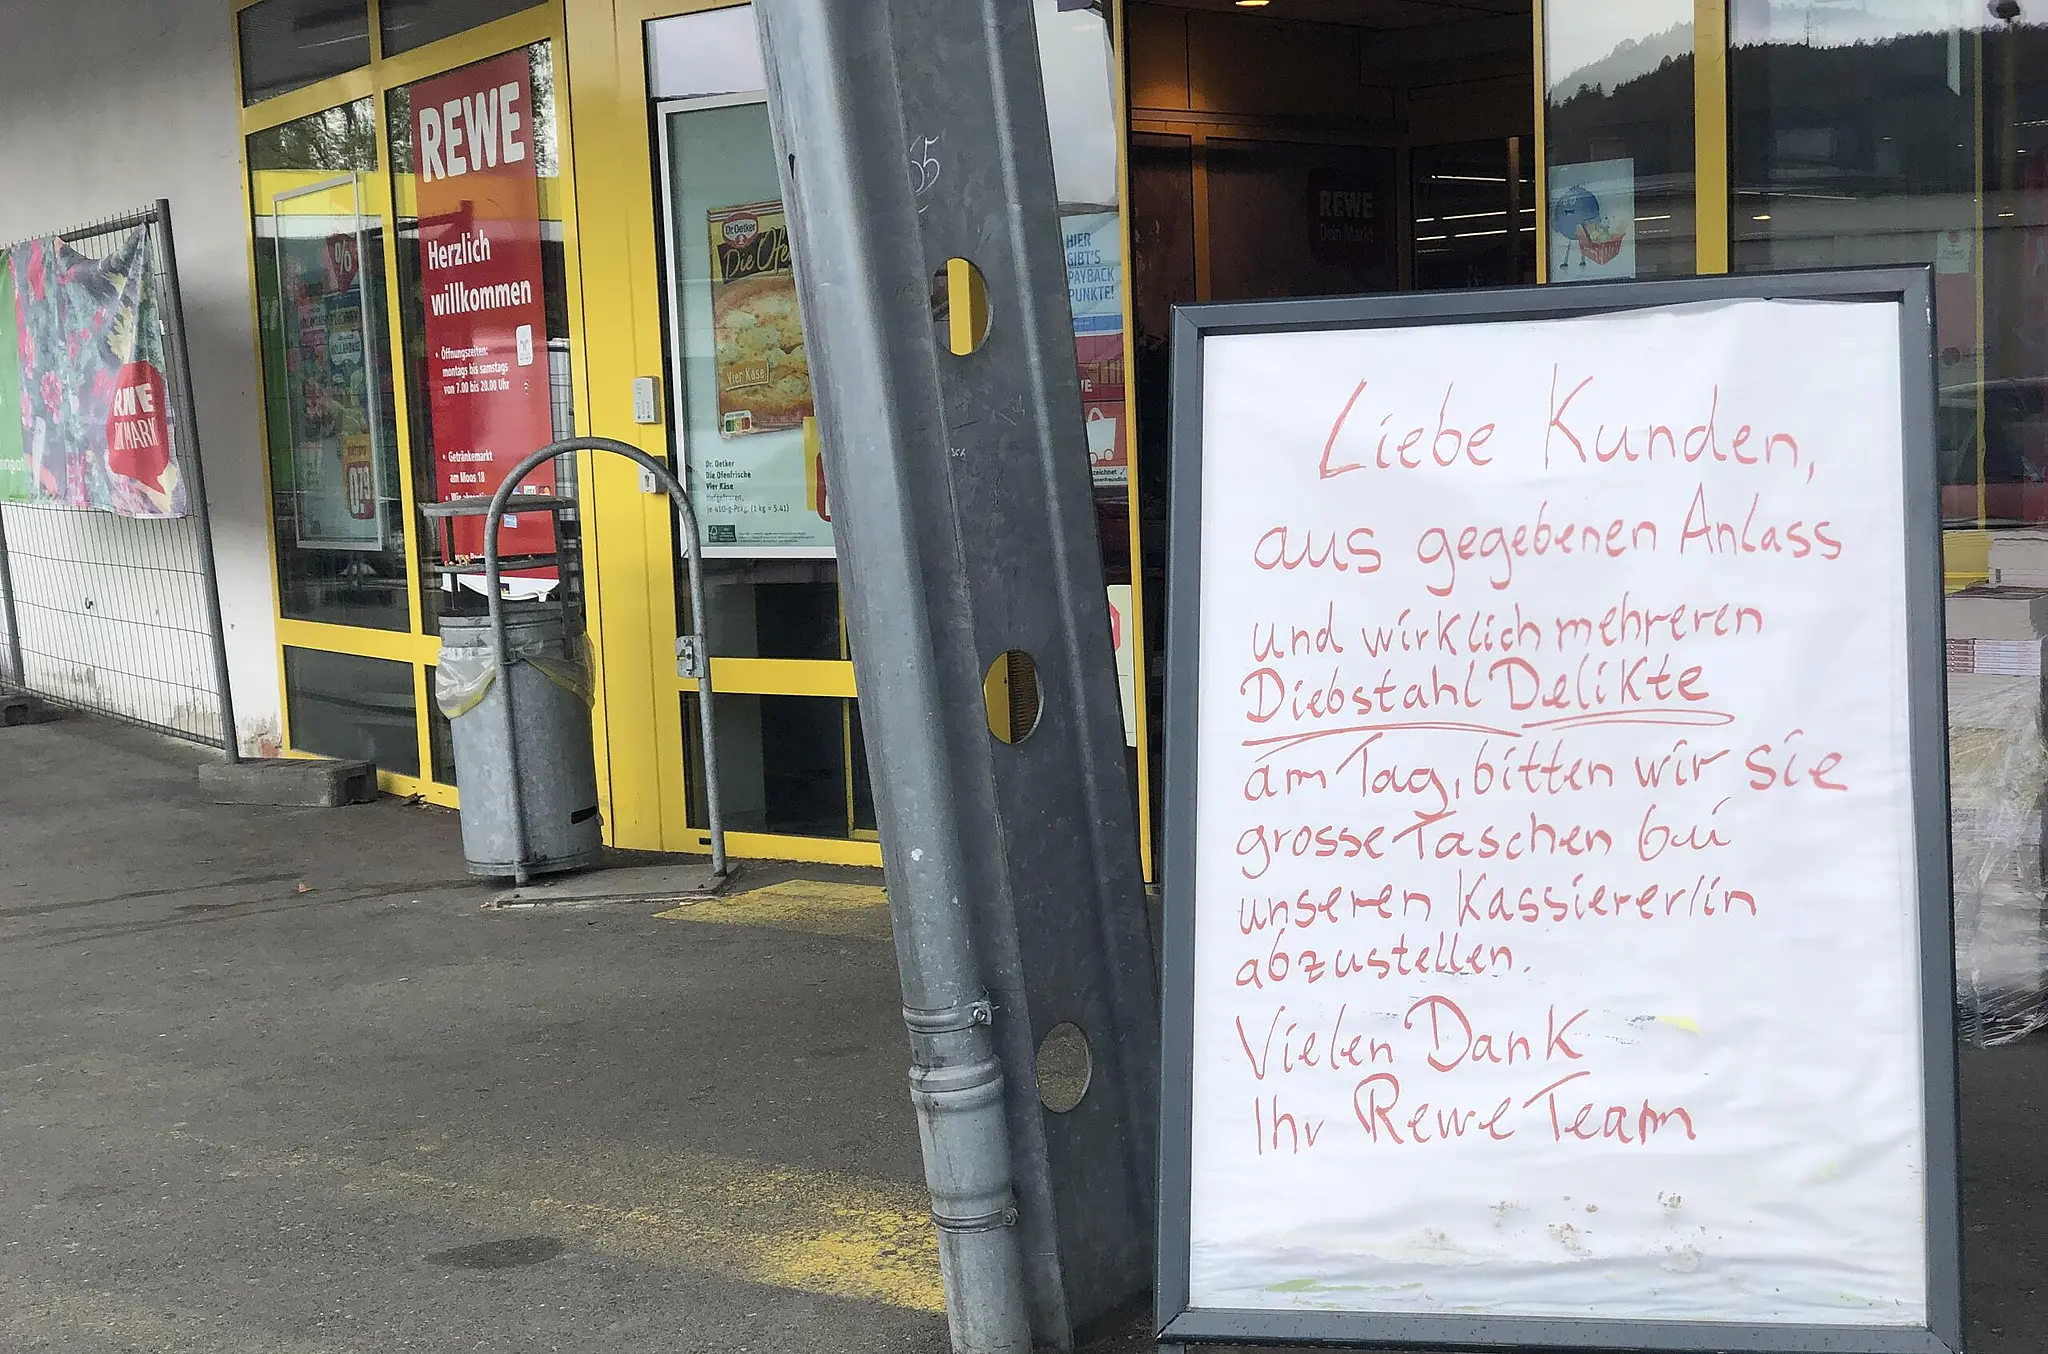 REWE
Herzlich
willkommen
• Öffnungszeiten:
montags bis samstags
von 7.00 bis 20.00 Uhr
• Getränkemarkt
am Moos 18
%
REWE
DEIN MARKT
Dr. Oetker
Die Ofe
Vier Käse
Dr. Oetker
Die Ofenfrische
Vier Käse
tiefgefroren,
je 410-g-Pckg. (1 kg = 5.41)
55
HIER
GIBT'S
PAYBACK
PUNKTE!
REWE
Dein Markt
Liebe Kunden,
aus gegebenen Anlass
und wirklich mehreren
Diebstahl Delikte
am Tag, bitten wir sie
grosse Taschen bei
unseren Kassierer/in
abzustellen.
Vielen Dank
Ihr Rewe Team